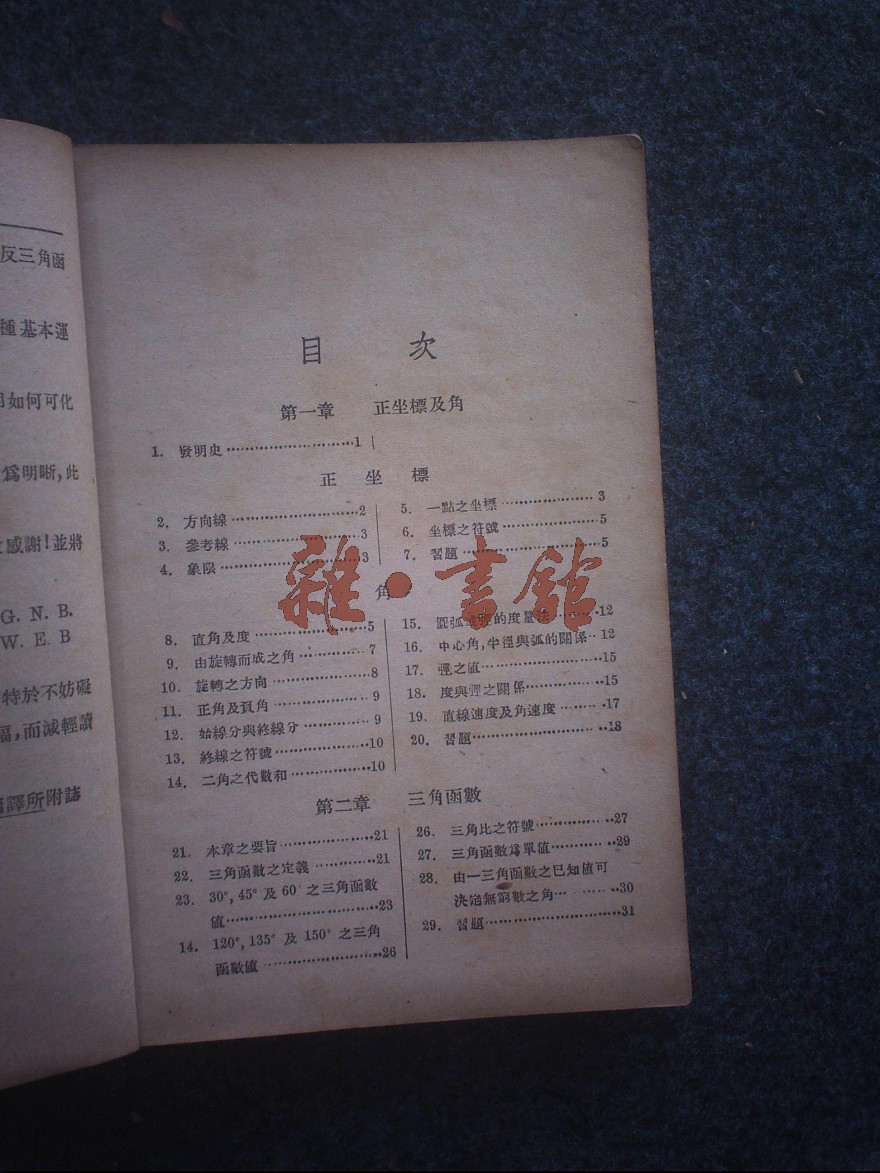 反三角函
種基本運
如何可化
爲明晰,此
感謝!並將
G. N. B.
W. E. B
特於不妨礙
而減輕讀
譯所附誌
目 次
第一章 正坐標及角
1. 發明史 ………………………1
正坐標
2. 方向線 ………………………2
3. 參考線 ………………………3
4. 象限 ………………………3
5. 一點之坐標 ………………………3
6. 坐標之符號 ………………………5
7. 習題 ………………………5
角
8. 直角及度 ………………………5
9. 由旋轉而成之角 …………7
10. 旋轉之方向 ………………8
11. 正角及負角 ………………9
12. 始線分與終線分 …………9
13. 終線之符號 ………………10
14. 二角之代數和 ……………10
15. 圓弧 的度量法 ………12
16. 中心角,半徑與弧的關係 ‥12
17. 弳之值 ………………15
18. 度與弳之關係 ……………15
19. 直線速度及角速度 ………17
20. 習題 ………………………18
第二章 三角函數
21. 本章之要旨 ………………21
22. 三角函數之定義 …………21
23. 30°, 45° 及 60° 之三角函數
値 ………………………23
14. 120°, 135° 及 150° 之三角
函數値 ………………26
26. 三角比之符號 ……………27
27. 三角函數爲單値 …………29
28. 由一三角函數之已知値可
決定無窮數之角 …………30
29. 習題 ………………………31
雜·書館